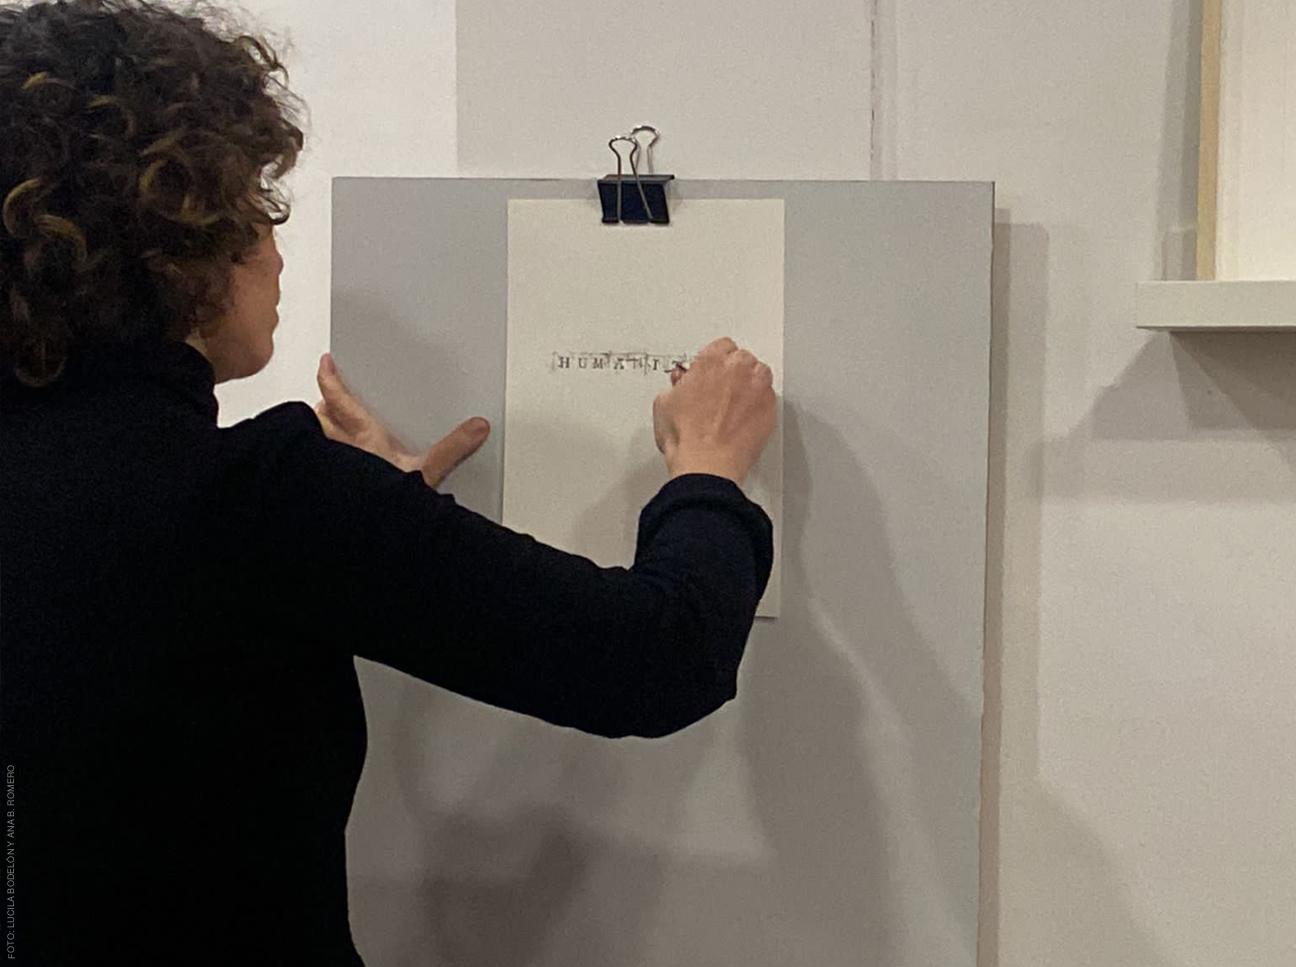 HUMANI
FOTO: LUCILA BODELÓN Y ANA B. ROMERO